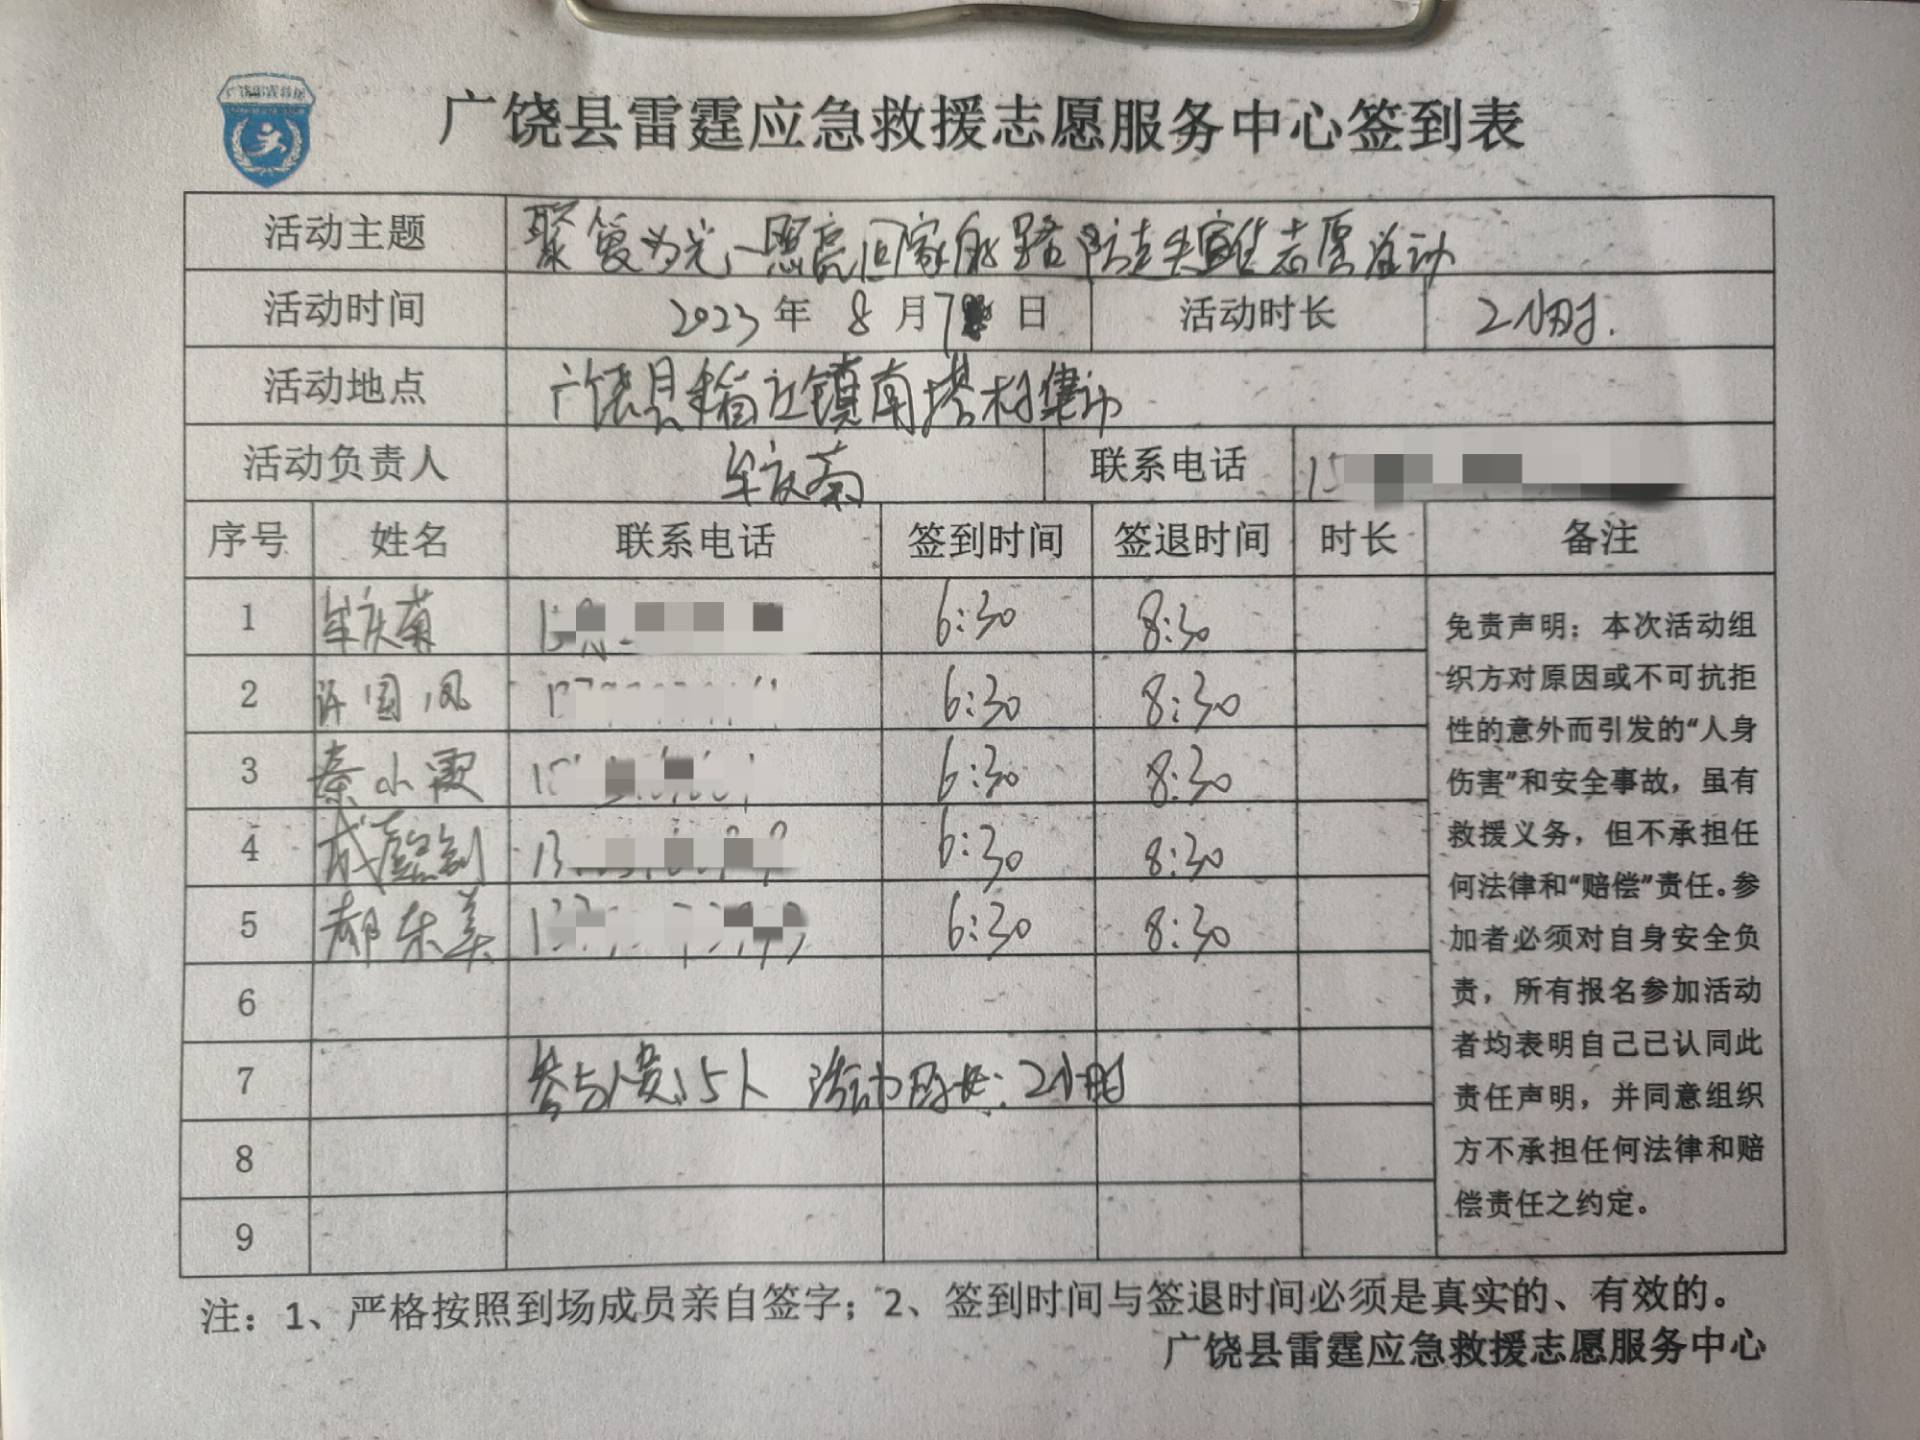 广饶雷霆救援
广饶县雷霆应急救援志愿服务中心签到表
活动主题 聚爱为光 照亮回家的路 防走失宣传志愿活动
活动时间 2023 年 8 月 7 日 活动时长 2小时.
活动地点 广饶县稻庄镇南塔村集
活动负责人 牟庆菊 联系电话 15
序号 姓名 联系电话 签到时间 签退时间 时长 备注
1 牟庆菊 6:30 8:30
2 许国凤 6:30 8:30
3 秦小霞 6:30 8:30
4 成 6:30 8:30
5 郝东美 6:30 8:30
6
7 参与人员:5人 活动时长:2小时
8
9
免责声明：本次活动组
织方对原因或不可抗拒
性的意外而引发的“人身
伤害”和安全事故，虽有
救援义务，但不承担任
何法律和“赔偿”责任。参
加者必须对自身安全负
责，所有报名参加活动
者均表明自己已认同此
责任声明，并同意组织
方不承担任何法律和赔
偿责任之约定。
注：1、严格按照到场成员亲自签字；2、签到时间与签退时间必须是真实的、有效的。
广饶县雷霆应急救援志愿服务中心